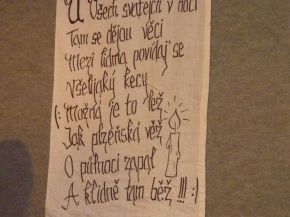 U Všech svatejch v noci
Tam se dějou věci
Mezi lidma povídaj se
Všelijaký kecy
(: Možná je to lež
Jak plzeňská věž
O půlnoci zapal
A klidně tam běž !!! :)